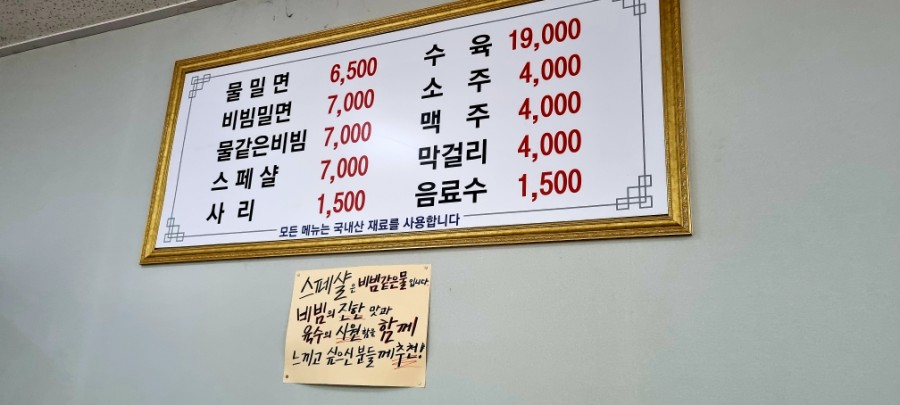 물밀면 6,500
비빔밀면 7,000
물같은비빔 7,000
스페샬 7,000
사리 1,500
수육 19,000
소주 4,000
맥주 4,000
막걸리 4,000
음료수 1,500
모든 메뉴는 국내산 재료를 사용합니다
스페샬은 비빔같은물입니다.
비빔의 진한 맛과
육수의 시원함을 함께
느끼고 싶으신 분들께 추천!